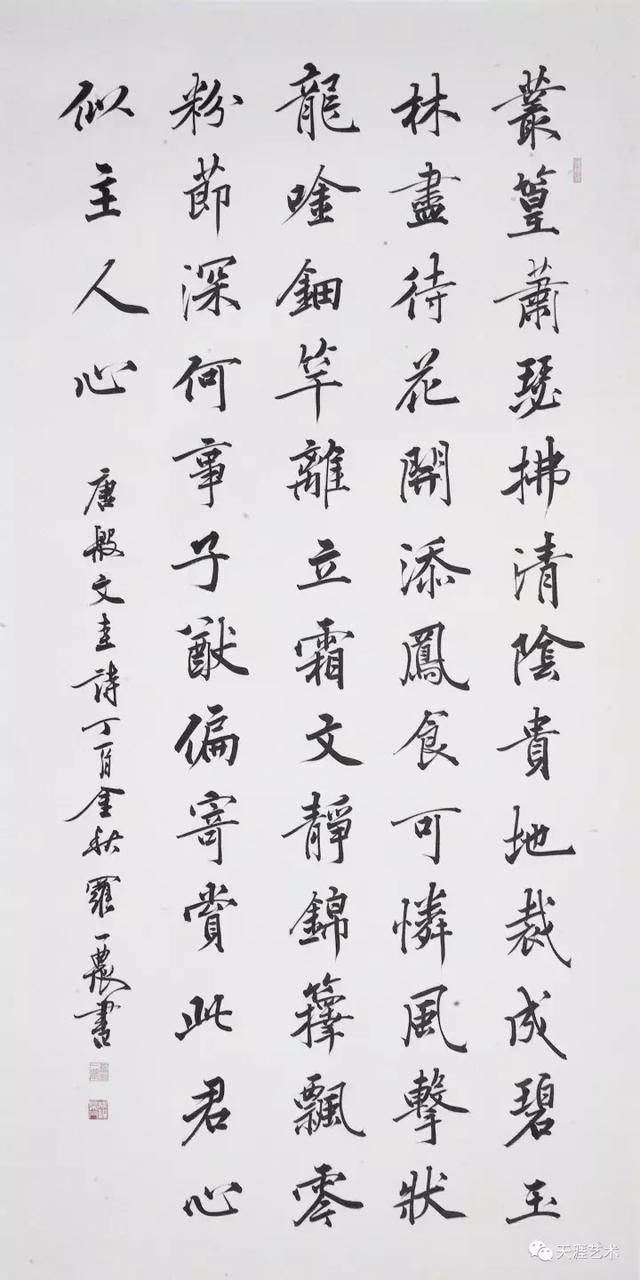 叢篁蕭瑟拂清陰貴地裁成碧玉
林盡待花開添鳳食可憐風擊狀
龍唫鈿竿離立霜文靜錦籜飄零
粉節深何事子猷偏寄賞此君心
似主人心
唐殷文圭詩丁酉金秋羅一農書
天涯艺术